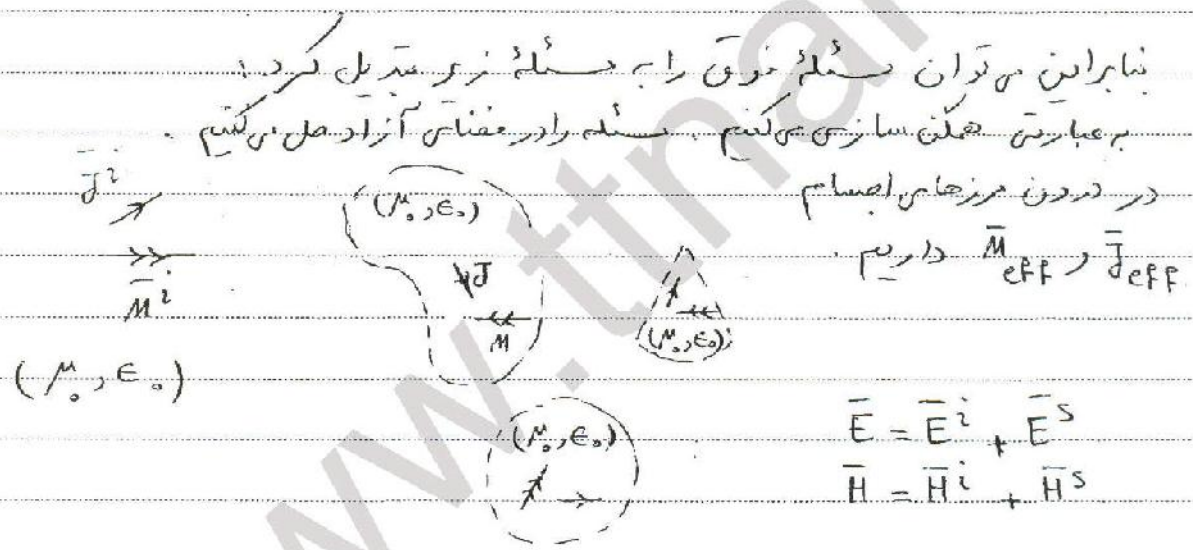 بنابراین می‌توان مسئلهٔ فوق را به مسئلهٔ زیر تبدیل کرد :
به عبارتی همگن سازی می‌کنیم . مسئله را در فضای آزاد حل می‌کنیم .
در درون مرزهای اجسام
J̄eff و M̄eff داریم .
J̄ⁱ
M̄ⁱ
(μ₀,ϵ₀)
(μ₀,ϵ₀)
J̄
M
(μ₀,ϵ₀)
(μ₀,ϵ₀)
Ē = Ēⁱ + Ēˢ
H̄ = H̄ⁱ + H̄ˢ